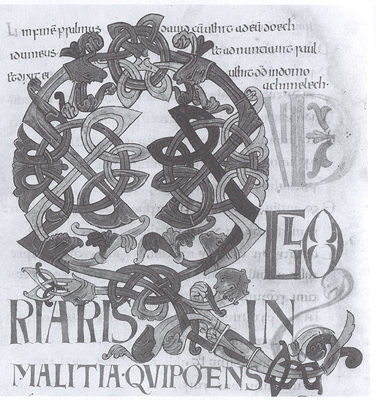 In finē psalmus dauid cū uenit ad eū doech
idumeus & adnunciauit saul
& dixit ei uenit dd̄ in domo
achimelech·
QVID
GLO
RIARIS IN
MALITIA·QVIPOTENS